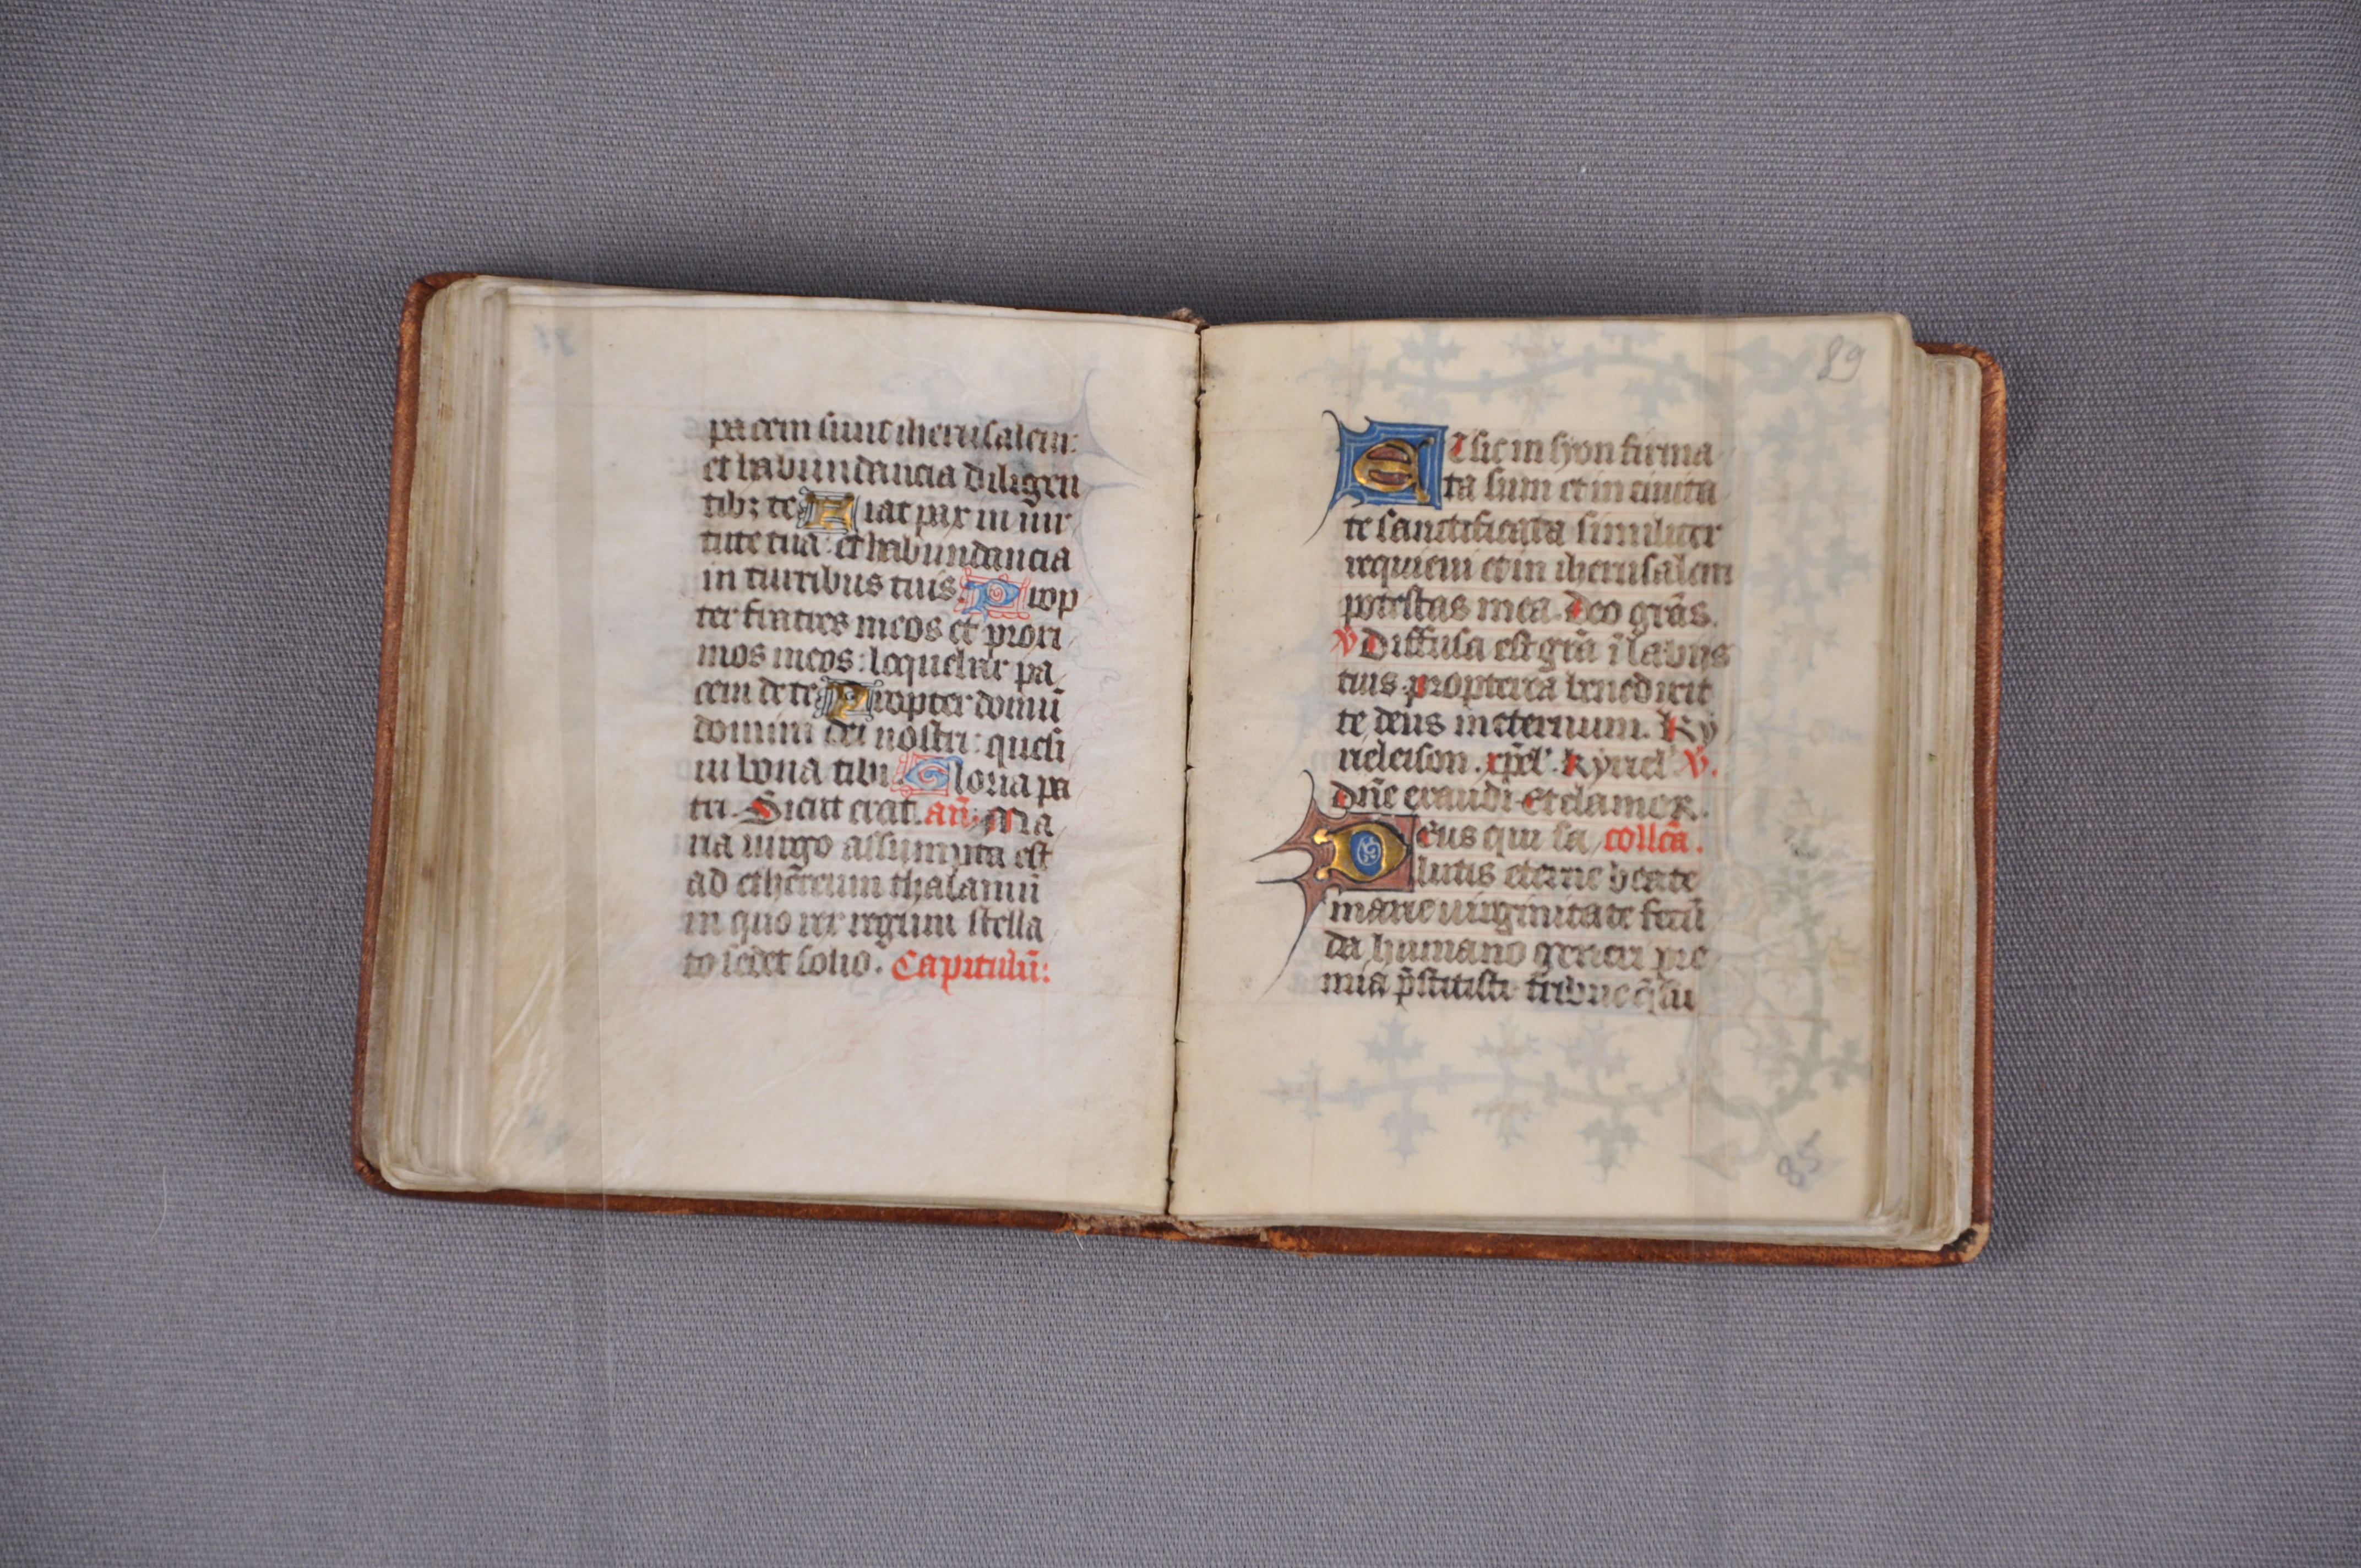 pacem sunt iherusalem:
et habundancia diligen
tibꝫ te Fiat pax in uir
tute tua: et habundancia
in turribus tuis. Prop
ter fratres meos et proxi
mos meos: loquebar pa
cem de te Propter domū
domini dei nostri: quesi
ui bona tibi Gloria pa
tri. Sicut erat. añ: Ma
ria uirgo assumpta est
ad ethereum thalamū
in quo rex regum stella
to sedet solio. Capitulū:
89
Et sic in syon firma
ta sum et in ciuita
te sanctificata similiter
requieui et in iherusalem
potestas mea. Deo grās.
V Diffusa est grā ī labijs
tuis. propterea benedixit
te deus in eternum. Ky
rieleison. xp̄el'. Kyriel' V.
Dn̄e exaudi. Et clamor.
Deus qui sa collcā.
lutis eterne beate
marie uirginitate fecū
da humano generi pre
mia p̄stitisti tribue q̄su
35